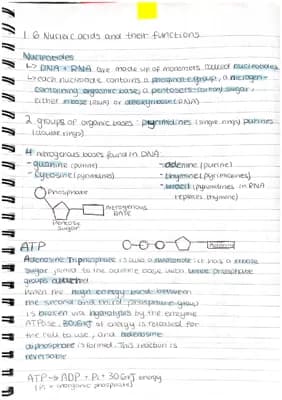 1.6 Nucleic acids and their functions
Nucleotides
↳ DNA + RNA are made up of monomers called nucleotides
↳ each nucleotide contains a phosphate group, a nitrogen-
containing organic base, a pentose (5-carbon) sugar,
either ribose (RNA) or deoxyribose (DNA)
2 groups of organic bases: pyrimidines (single rings) purines
(double rings)
4 nitrogenous bases found in DNA
- guanine (purine) - adenine (purine)
- cytosine (pyrimidines) - thymine (pyrimidines)
- uracil (pyrimidines in RNA
replaces thymine)
Phosphate
nitrogenous
BASE
Pentose
sugar
ATP
Adenosine Triphosphate is also a nucleotide it has a ribose
sugar joined to the adenine base with three phosphate
groups attached
When the high energy bond between
the second and third phosphate group
is broken via hydrolysis by the enzyme
ATPase, 30.6KJ of energy is released for
the cell to use, and adenosine
diphosphate is formed. This reaction is
reversible
ATP → ADP + Pi + 30.6KJ energy
(Pi = inorganic phosphate)